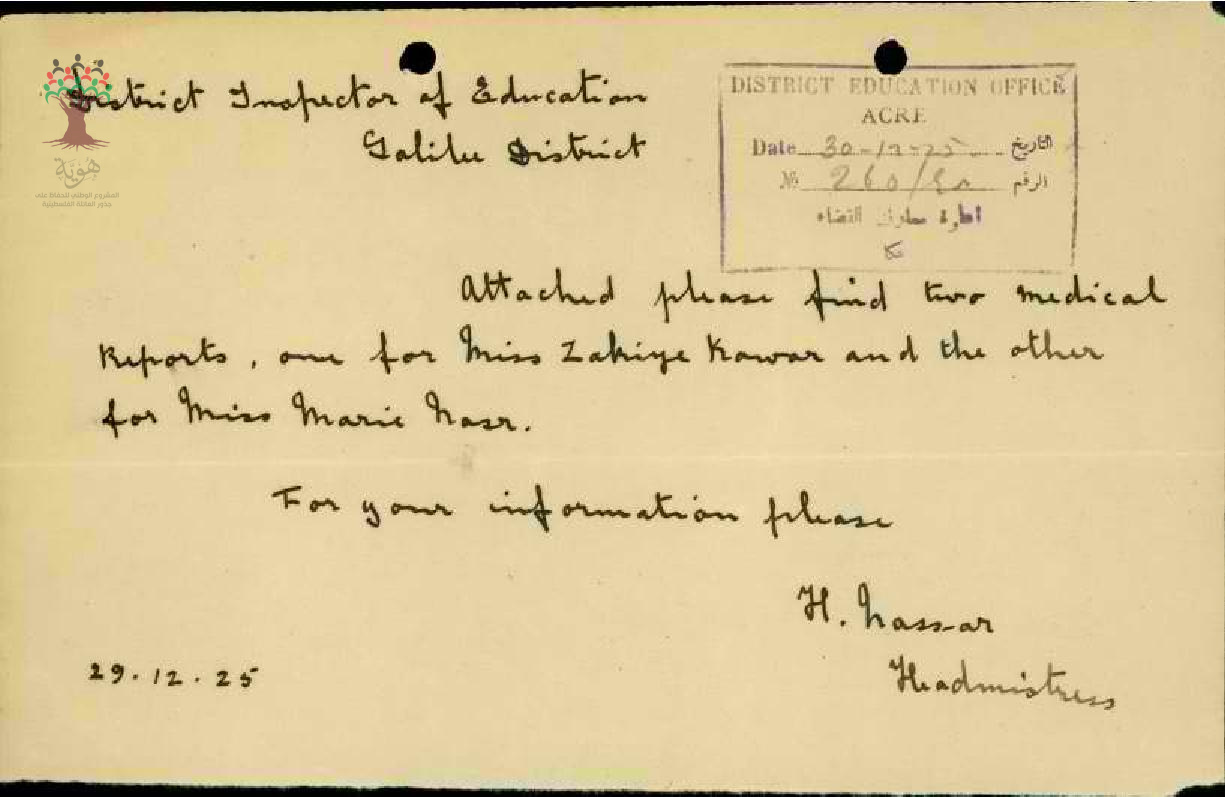 هوية
المشروع الوطني للحفاظ على
جذور العائلة الفلسطينية
District Inspector of Education
Galilee District
DISTRICT EDUCATION OFFICE
ACRE
Date 30-12-25 التاريخ
№ 260/ الرقم
ادارة معارف القضاء
عكا
Attached please find two medical
Reports, one for Miss Zakiye Kawar and the other
for Miss Marie Nasr.
For your information please
H. Nassar
Headmistress
29.12.25